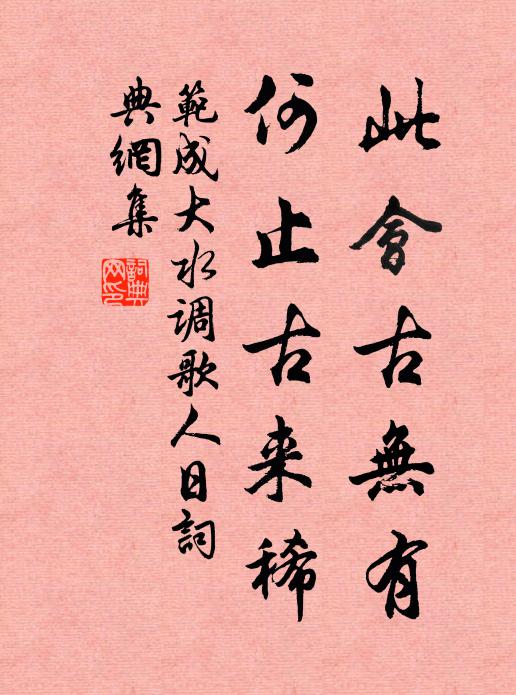 此會古無有
何止古来稀
範成大水调歌人日詞
典網集
詞典
网印